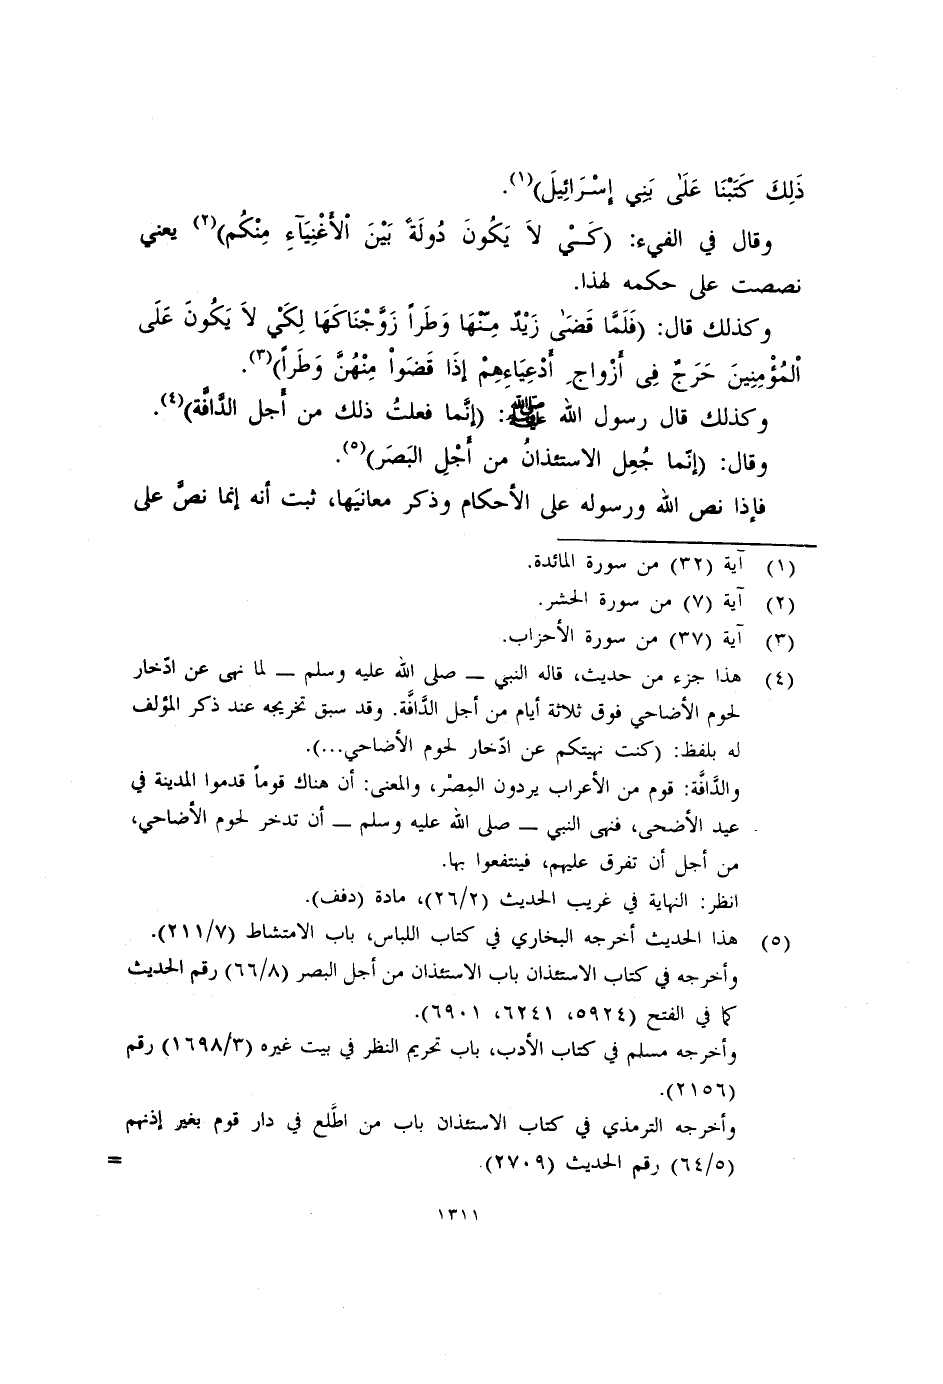 ذَلِكَ كَتَبْنَا عَلَىٰ بَنِي إِسْرَائِيلَ)(١).
وقال في الفيء: (كَيْ لاَ يَكُونَ دُولَةً بَيْنَ الْأَغْنِيَآءِ مِنْكُم)(٢) يعني
نصصت على حكمه لهذا.
وكذلك قال: (فَلَمَّا قَضَىٰ زَيْدٌ مِنْهَا وَطَراً زَوَّجْنَاكَهَا لِكَيْ لاَ يَكُونَ عَلَى
الْمُؤْمِنِينَ حَرَجٌ فِى أَزْوَاجِ أَدْعِيَاءِهِمْ إِذَا قَضَواْ مِنْهُنَّ وَطَراً)(٣).
وكذلك قال رسول الله ﷺ: (إنَّما فعلتُ ذلك من أجل الدَّافَّة)(٤).
وقال: (إنّما جُعِل الاستئذانُ من أَجْلِ البَصَر)(٥).
فإذا نص الله ورسوله على الأحكام وذكر معانيَها، ثبت أنه إنما نصَّ على
(١) آية (٣٢) من سورة المائدة.
(٢) آية (٧) من سورة الحشر.
(٣) آية (٣٧) من سورة الأحزاب.
(٤) هذا جزء من حديث، قاله النبي ــ صلى الله عليه وسلم ــ لما نهى عن ادّخار
لحوم الأضاحي فوق ثلاثة أيام من أجل الدَّافَّة. وقد سبق تخريجه عند ذكر المؤلف
له بلفظ: (كنت نهيتكم عن ادّخار لحوم الأضاحي...).
والدَّافَّة: قوم من الأعراب يردون المِصْر، والمعنى: أن هناك قوماً قدموا المدينة في
عيد الأضحى، فنهى النبي ــ صلى الله عليه وسلم ــ أن تدخر لحوم الأضاحي،
من أجل أن تفرق عليهم، فينتفعوا بها.
انظر: النهاية في غريب الحديث (٢٦/٢)، مادة (دفف).
(٥) هذا الحديث أخرجه البخاري في كتاب اللباس، باب الامتشاط (٢١١/٧).
وأخرجه في كتاب الاستئذان باب الاستئذان من أجل البصر (٦٦/٨) رقم الحديث
كما في الفتح (٥٩٢٤، ٦٢٤١، ٦٩٠١).
وأخرجه مسلم في كتاب الأدب، باب تحريم النظر في بيت غيره (١٦٩٨/٣) رقم
(٢١٥٦).
وأخرجه الترمذي في كتاب الاستئذان باب من اطَّلع في دار قوم بغير إذنهم
(٦٤/٥) رقم الحديث (٢٧٠٩). =
١٣١١